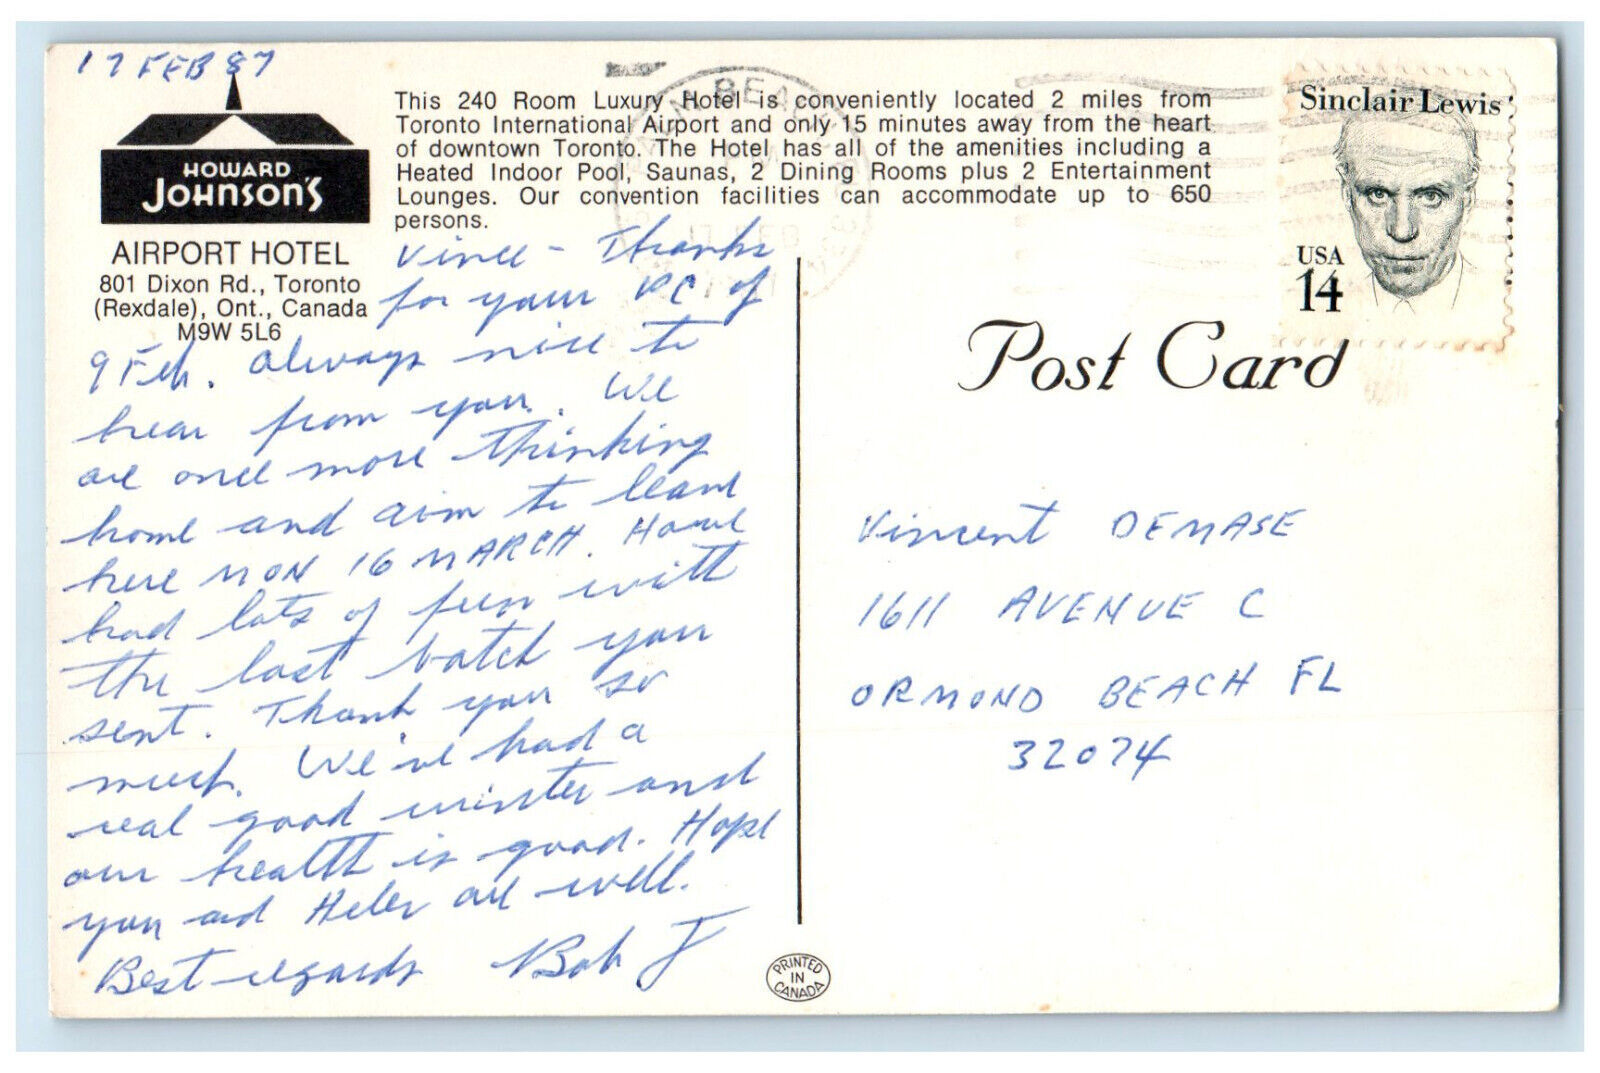 17 FEB 87
HOWARD
JOHNSON'S
AIRPORT HOTEL
801 Dixon Rd., Toronto
(Rexdale), Ont., Canada
M9W 5L6
This 240 Room Luxury Hotel is conveniently located 2 miles from
Toronto International Airport and only 15 minutes away from the heart
of downtown Toronto. The Hotel has all of the amenities including a
Heated Indoor Pool, Saunas, 2 Dining Rooms plus 2 Entertainment
Lounges. Our convention facilities can accommodate up to 650
persons.
Vince - Thanks
for your PC of
9 Feb. Always nice to
hear from you. We
are once more thinking
home and aim to leave
here MON 16 MARCH. Have
had lots of fun with
the last batch you
sent. Thank you so
much. We've had a
real good winter and
our health is good. Hope
you and Helen are well.
Best regards Bob J
17 FEB
Sinclair Lewis
USA
14
Post Card
Vincent DEMASE
1611 AVENUE C
ORMOND BEACH FL
32074
PRINTED
IN
CANADA